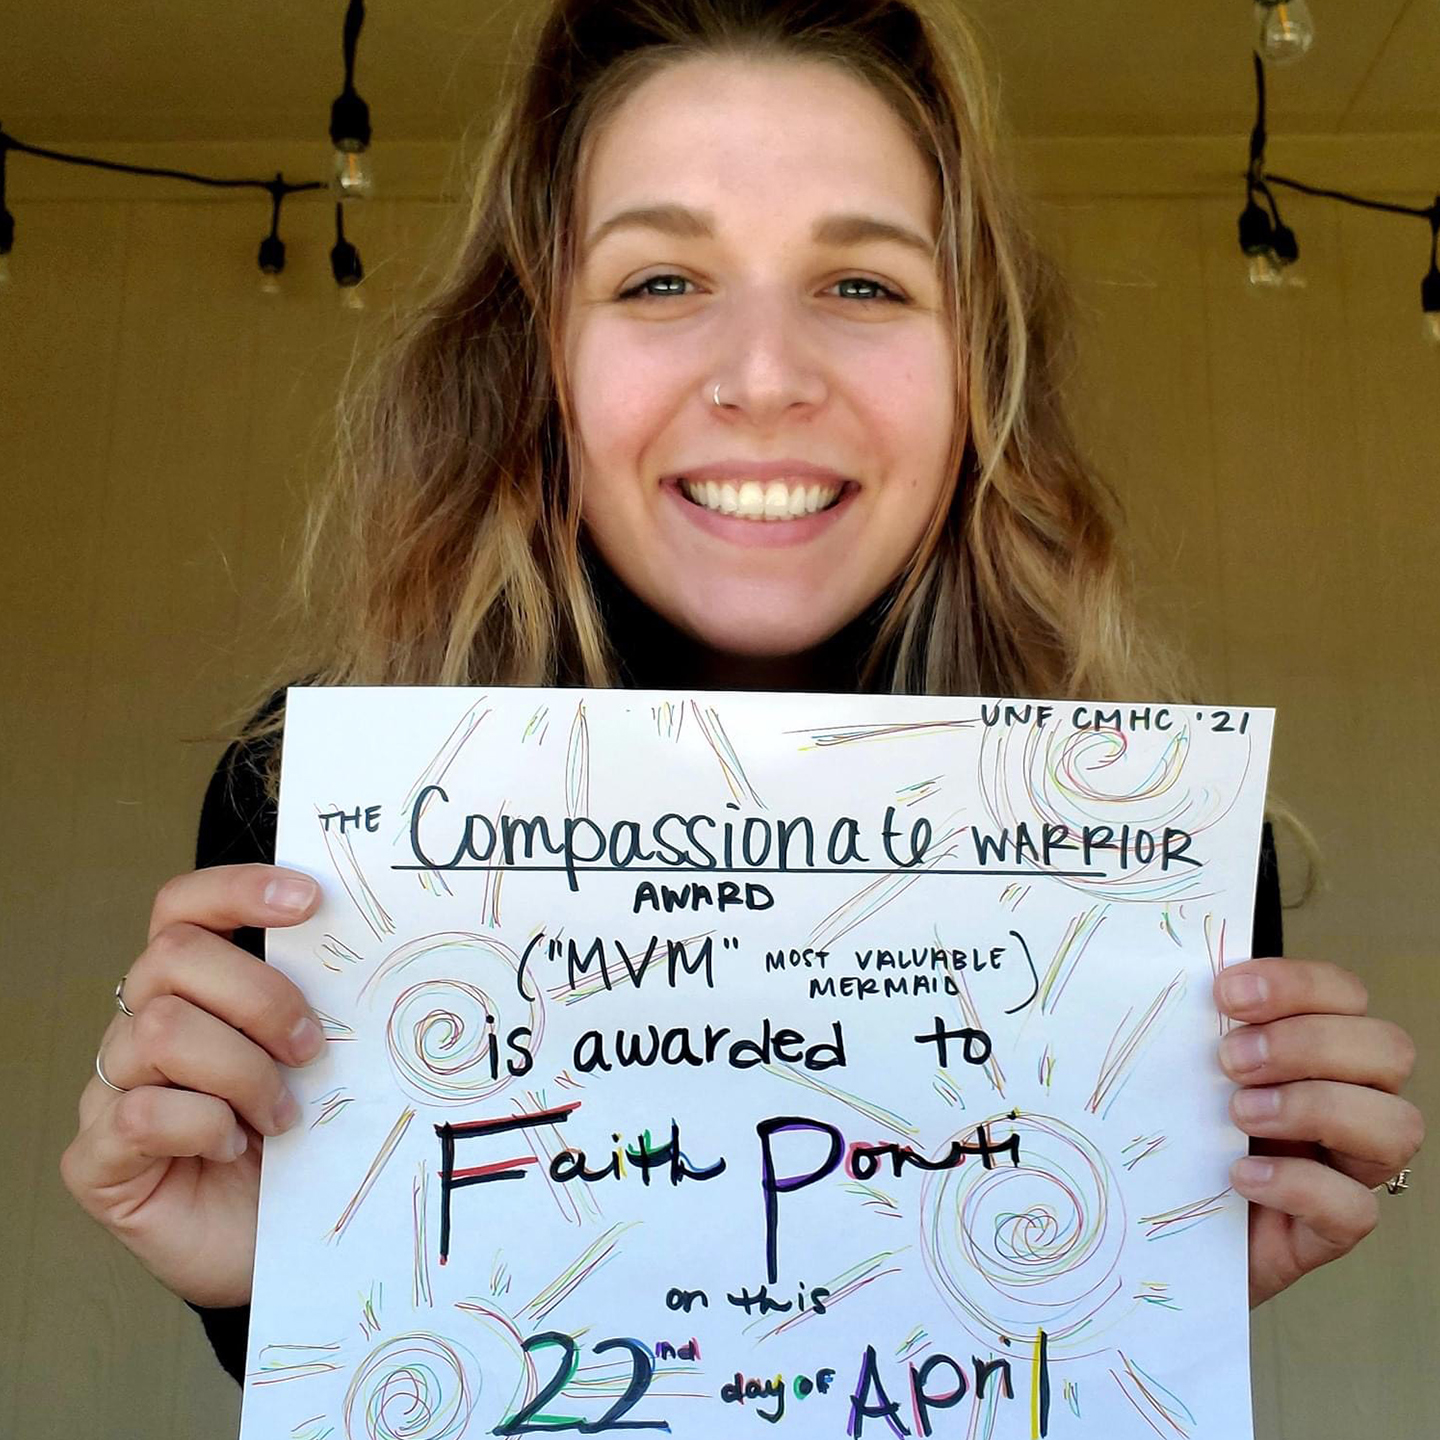 UNF CMHC '21
THE Compassionate WARRIOR
AWARD
("MVM" MOST VALUABLE
MERMAID)
is awarded to
Faith Ponti
on this
22nd day of April